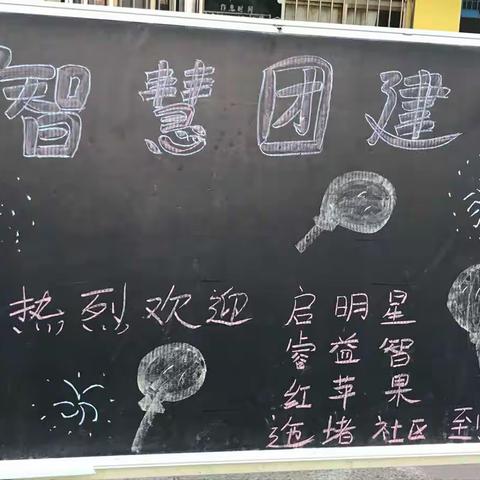 智慧团建
热烈欢迎 启明星
睿益智
红苹果
迤堵社区